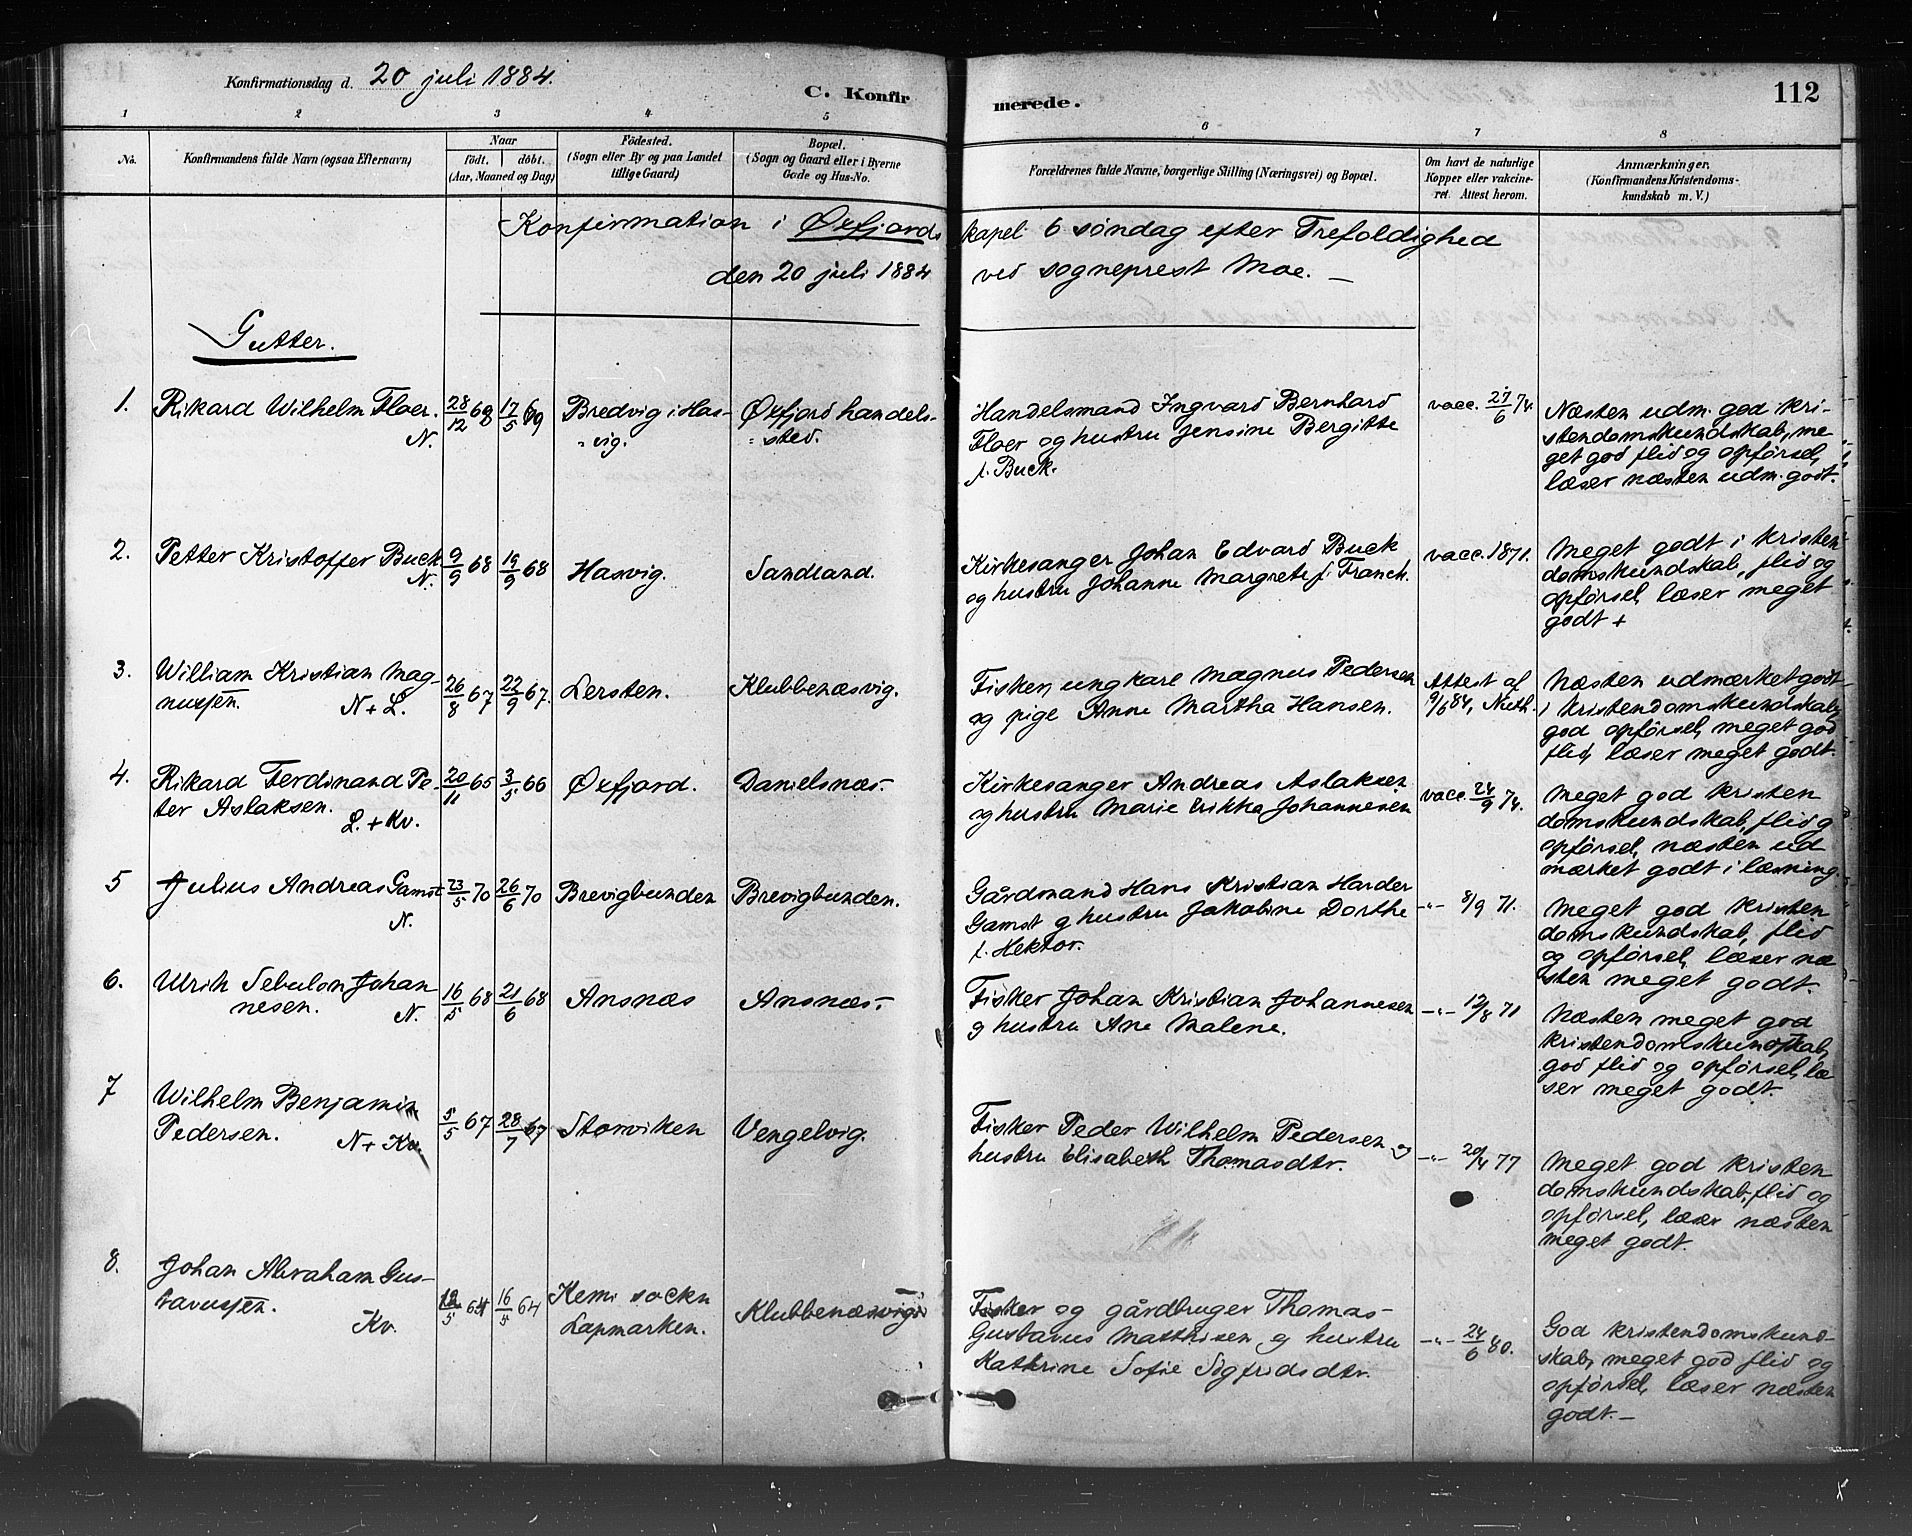 Konfirmationsdag d. 20 juli 1884.
C. Konfirmerede.
112
1 2 3 4 5 6 7 8
No.
Konfirmandens fulde Navn (ogsaa Efternavn)
Naar
födt. döbt.
(Aar, Maaned og Dag)
Födested.
(Sogn eller By og paa Landet
tillige Gaard)
Bopæl.
(Sogn og Gaard eller i Byerne
Gade og Hus-No.
Forældrenes fulde Navne, borgerlige Stilling (Næringsvei) og Bopæl.
Om havt de naturlige
Kopper eller vakcine-
ret. Attest herom.
Anmærkninger.
(Konfirmandens Kristendoms-
kundskab m. V.)
Konfirmation i Øxfjords kapel 6 søndag efter Trefoldighed
den 20 juli 1884 ved sogneprest Moe. —
Gutter.
1. Rikard Wilhelm Floer.
N.
28/12 68 17/5 69
Bredvig i Has-
vig.
Øxfjord handels-
sted.
Handelsmand Ingvard Bernhard
Floer og hustru Jensine Bergitte
f. Buck.
vacc. 27/6 74.
Næsten udm. god kri-
stendomskundskab, me-
get god flid og opførsel,
læser næsten udm. godt.
2. Petter Kristoffer Buck
N.
9/9 68 19/9 68
Hasvig.
Sandland.
Kirkesanger Johan Edvard Buck
og hustru Johanne Margrete f. Franck.
vacc. 1871.
Meget godt i kristen
domskundskab, flid og
opførsel, læser meget
godt +
3. William Kristian Mag-
nussen.
N + L.
26/8 67 22/9 67.
Lersten.
Klubbenæsvig.
Fisker, ungkarl Magnus Pedersen
og pige Anne Martha Hansen.
Attest af
9/6 84, Nieth.
Næsten udmærket godt
i kristendomskundskab,
god opførsel, meget god
flid, læser meget godt.
4. Rikard Ferdinand Pe-
ter Aslaksen.
L. + Kv.
20/11 65 3/5 66
Øxfjord.
Danielsnæs.
Kirkesanger Andreas Aslaksen
og hustru Marie Erikka Johannesen
vacc. 24/9 74.
Meget god kristen
domskundskab, flid og
opførsel, næsten ud
mærket godt i læsning.
5 Julius Andreas Gamst
N.
23/5 70 26/6 70
Brevigbunden
Brevigbunden.
Gårdmand Hans Kristian Harder
Gamst og hustru Jakobine Dorthe
f. Hektor.
—"— 8/9 71.
Meget god kristen
domskundskab, flid
og opførsel, læser næ
sten meget godt.
6. Ulrik Sebulon Johan
nesen.
N.
16/5 68 21/6 68
Ansnæs
Ansnæs.
Fisker Johan Kristian Johannesen
og hustru Ane Malene.
—"— 12/8 71
Næsten meget god
kristendomskundskab,
god flid og opførsel, læ
ser meget godt.
7 Wilhelm Benjamin
Pedersen.
N + Kv.
5/5 67 28/7 67
Storviken
Vengelvig.
Fisker Peder Wilhelm Pedersen og
hustru Elisabeth Thomasdtr.
—"— 20/4 77
Meget god kristen
domskundskab, flid og
opførsel, læser næsten
meget godt.
8. Johan Abraham Gus-
tavussen.
Kv.
12/5 64 16/5 64
Kemi sockn
Lapmarken.
Klubbenæsvig
Fisker og gårdbruger Thomas
Gustavus Matthisen og hustru
Kathrine Sofie Sigfridsdtr.
—"— 24/6 80.
God kristendomskund-
skab, meget god flid og
opførsel, læser næsten
godt. —